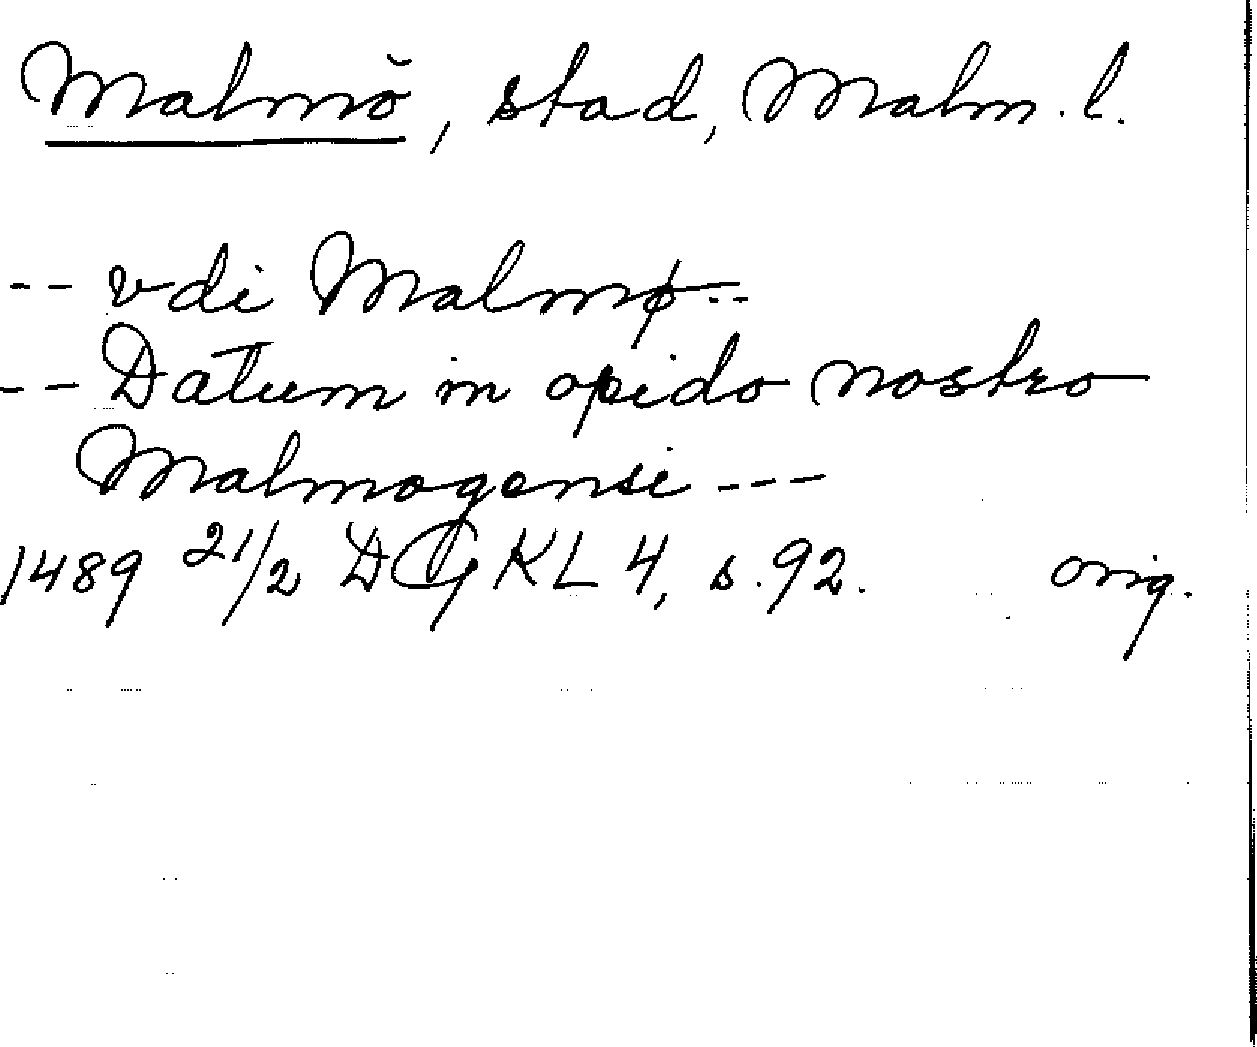 Malmö, stad, Malm. l.
-- vdi Malmø --
-- Datum in opido nostro
Malmogensi ---
1489 21/2 DGKL 4, s. 92. orig.